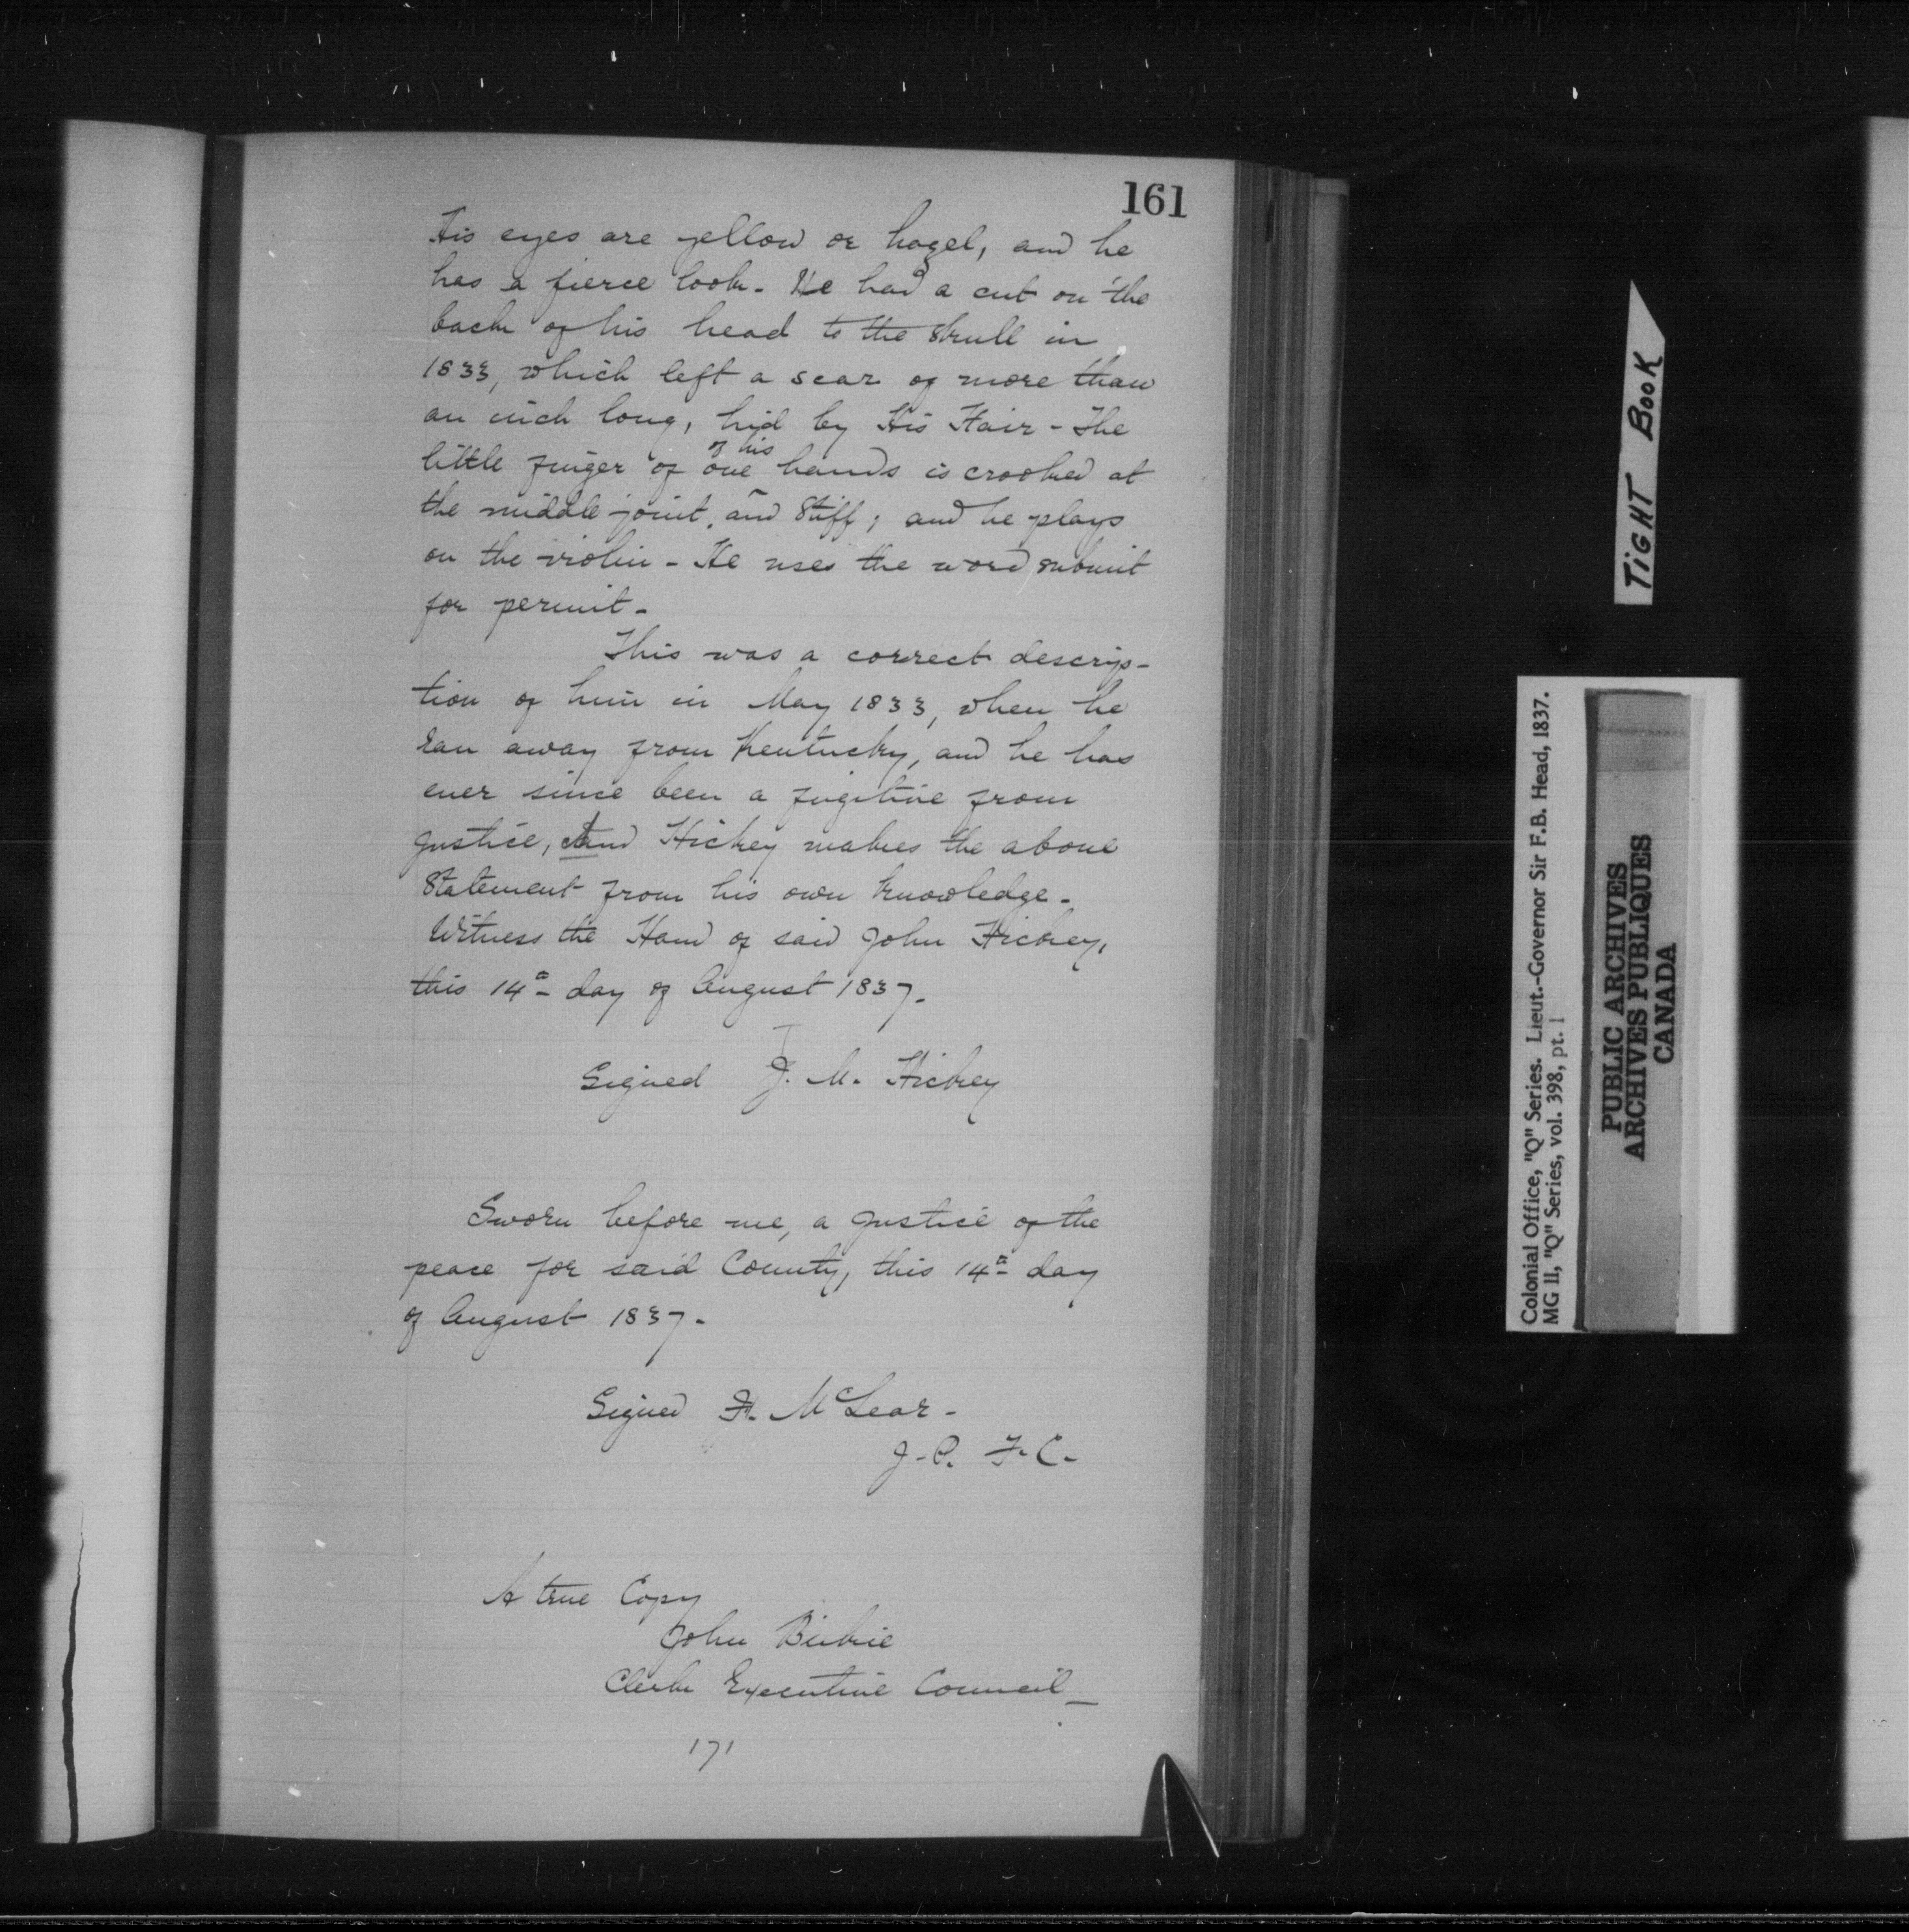 161
His eyes are yellow or hazel, and he
has a fierce look. He had a cut on the
back of his head to the skull in
1833, which left a scar of more than
an inch long, hid by His Hair - The
of his
little finger of one hands is crooked at
the middle joint, and Stiff; and he plays
on the violin - He uses the word submit
for permit -
This was a correct descrip-
tion of him in May 1833, when he
ran away from Kentucky, and he has
ever since been a fugitive from
justice, And Hickey makes the above
Statement from his own knowledge -
Witness the Hand of said John Hickey,
this 14th day of August 1837.
Signed J. M. Hickey
Sworn before me, a Justice of the
peace for said County, this 14th day
of August 1837.
Signed F. McLear -
J. P. F. C.
A true Copy
John Beikie
Clerk Executive Council
171
TIGHT BOOK
Colonial Office, "Q" Series. Lieut.-Governor Sir F.B. Head, 1837.
MG 11, "Q" Series, vol. 398, pt. 1
PUBLIC ARCHIVES
ARCHIVES PUBLIQUES
CANADA